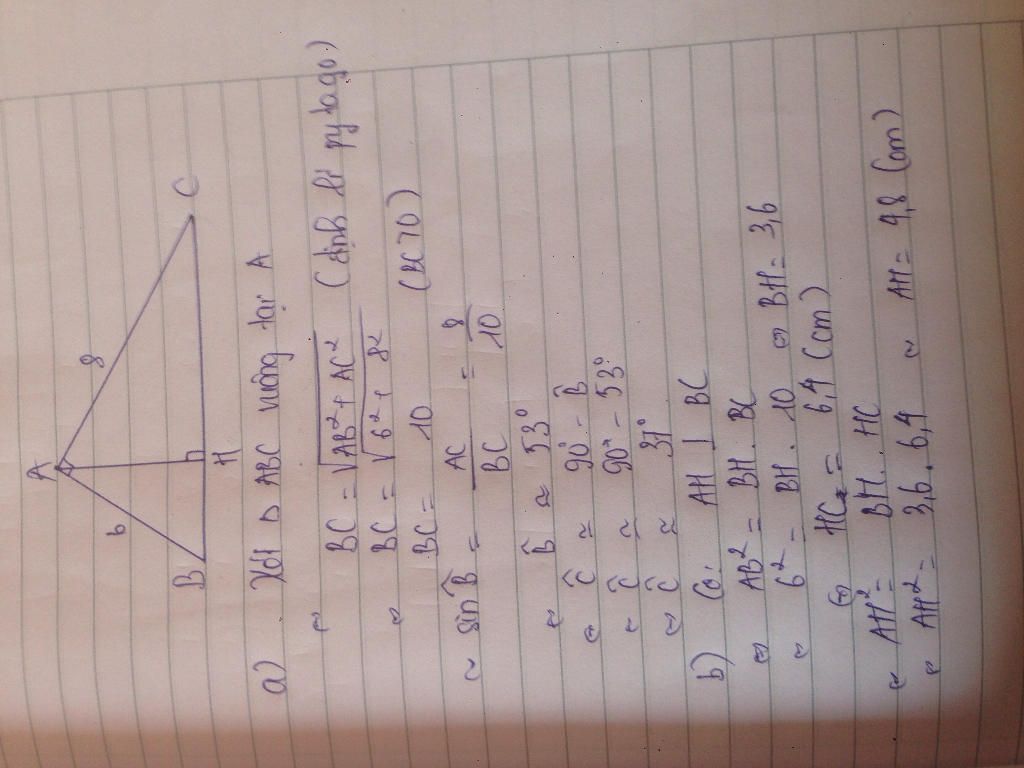 A
6
8
B
H
C
a) Xét Δ ABC vuông tại A
BC = √AB² + AC² (định lí pytago)
⇔ BC = √6² + 8²
BC = 10 (BC > 0)
~ sin B̂ = AC/BC = 8/10
~ B̂ ≈ 53°
~ Ĉ ≈ 90° - B̂
~ Ĉ ≈ 90° - 53°
~ Ĉ ≈ 37°
b) Có: AH ⊥ BC
⇔ AB² = BH . BC
~ 6² = BH . 10 ⇔ BH = 3,6
⇔ HC = 6,4 (cm)
~ AH² = BH . HC
~ AH² = 3,6 . 6,4 ~ AH = 4,8 (cm)